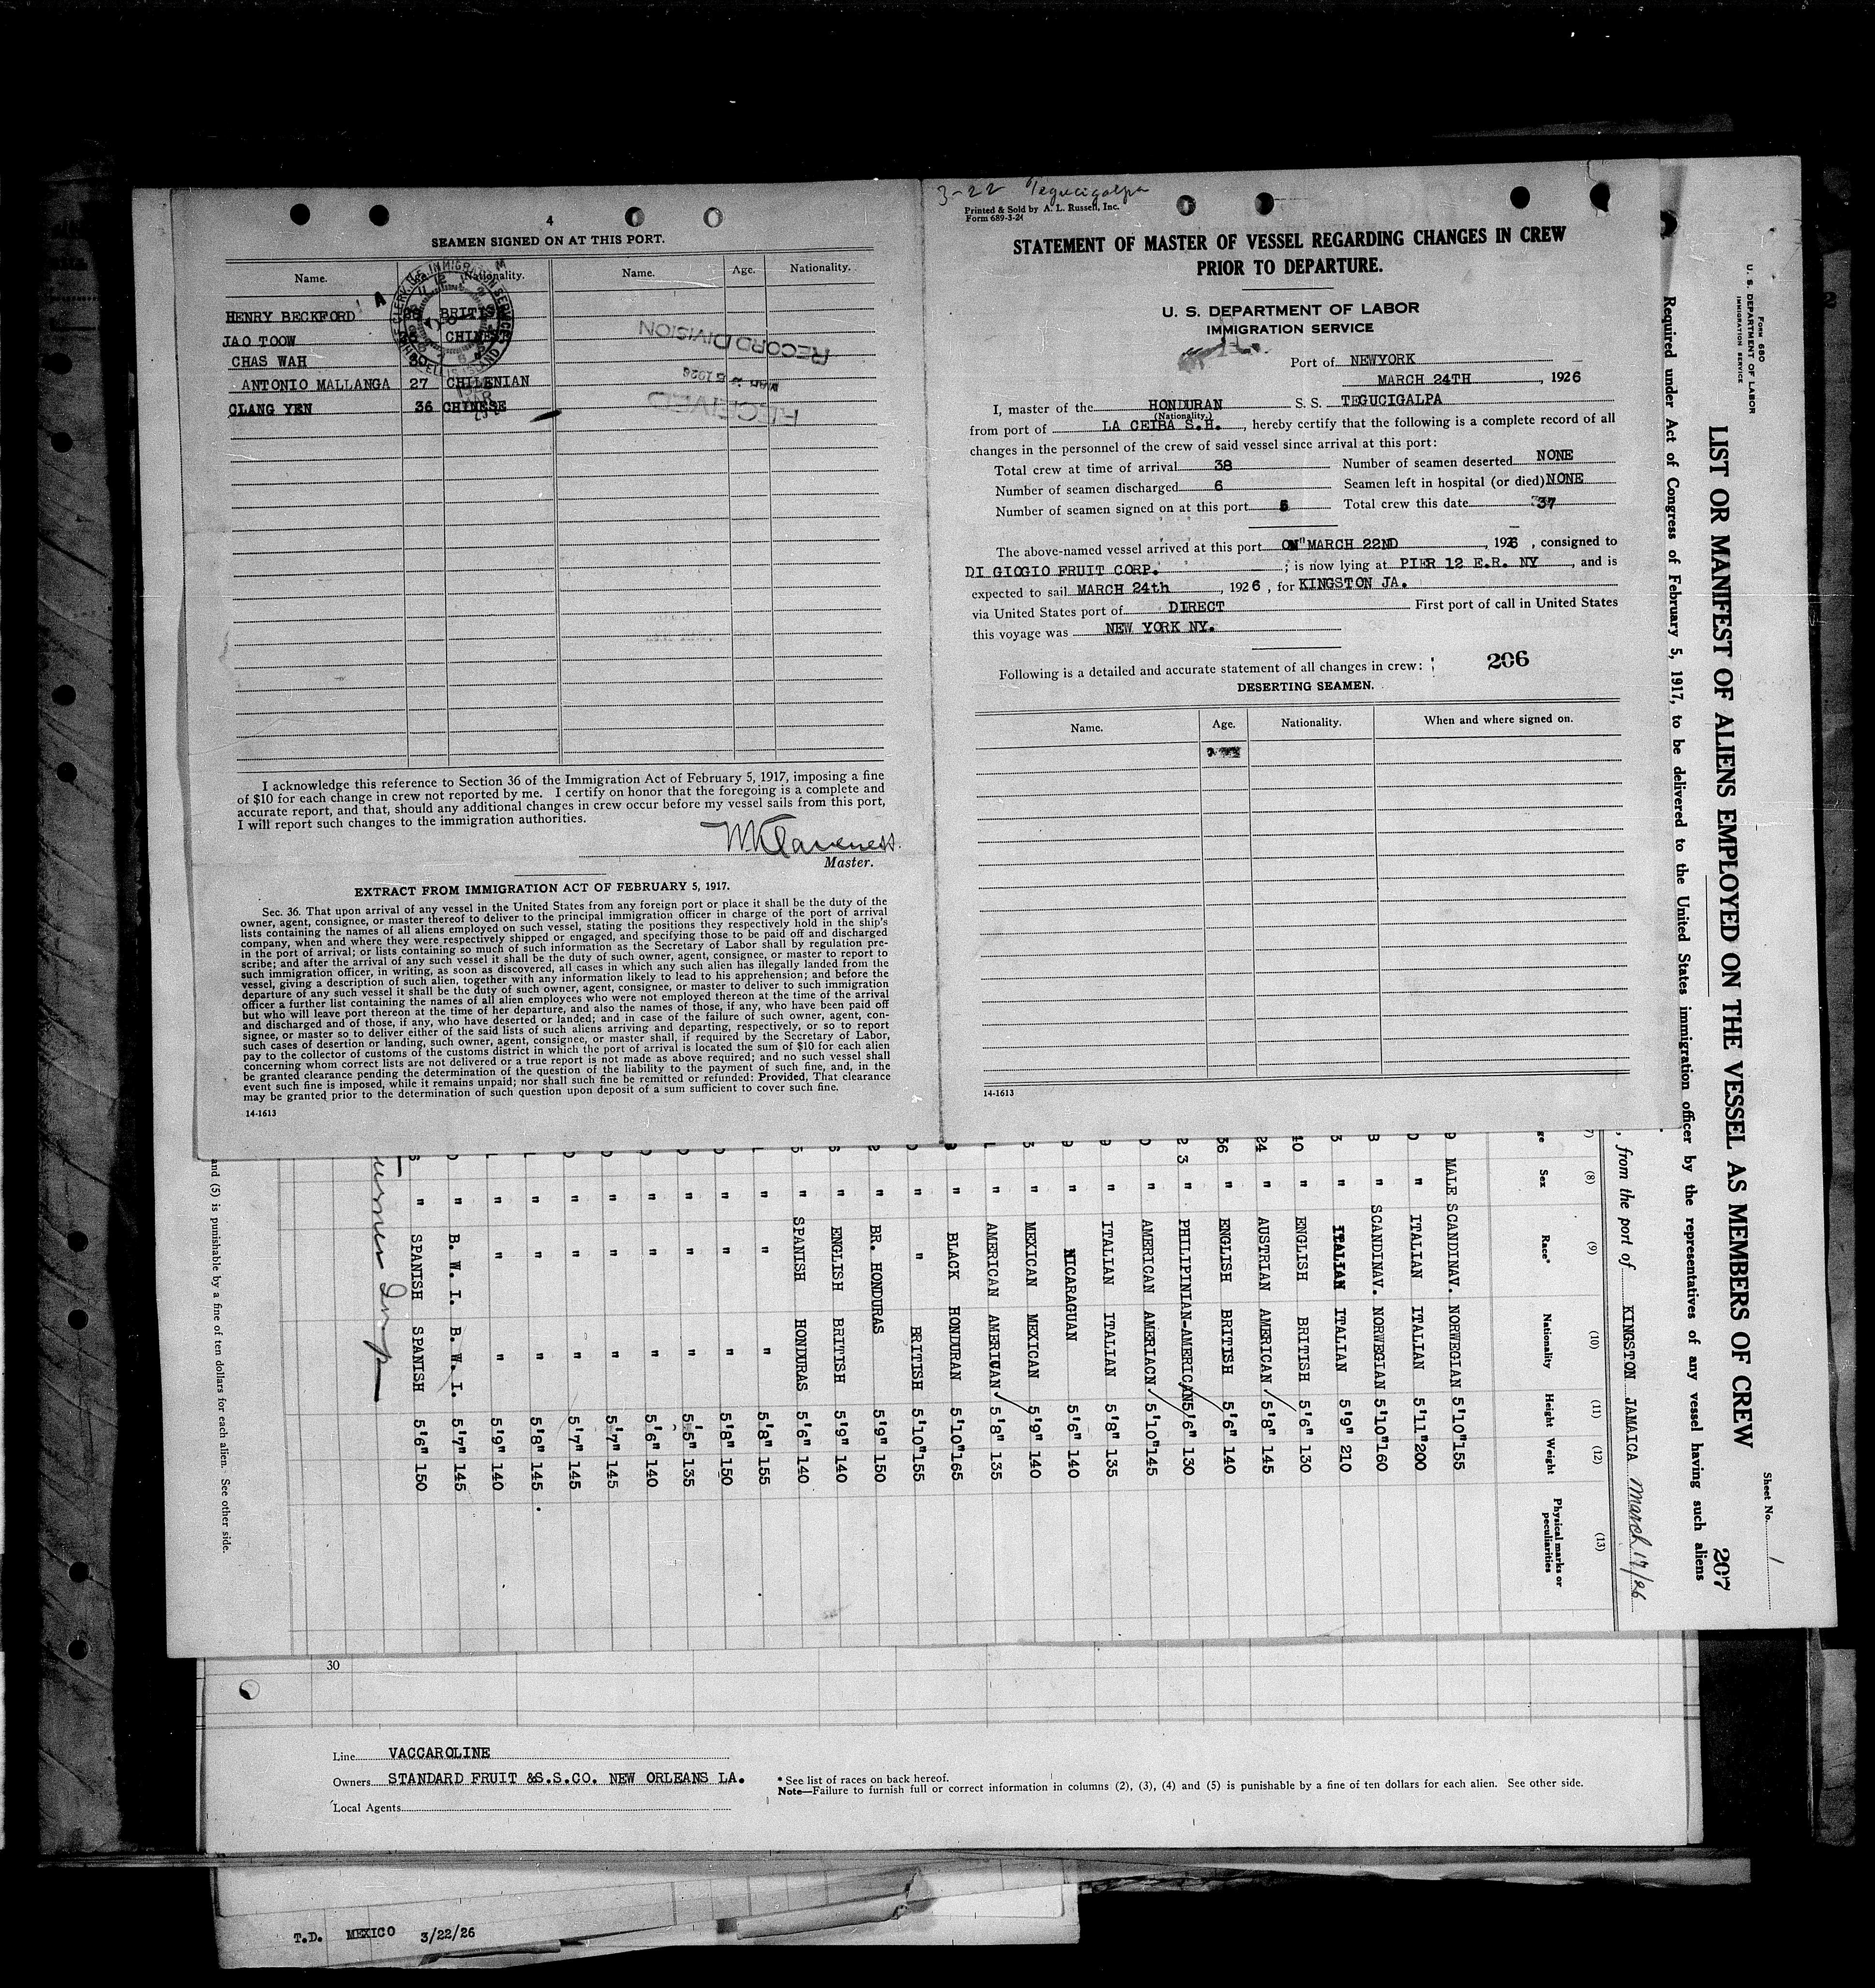 4
SEAMEN SIGNED ON AT THIS PORT.
Name. Nationality. Name. Age. Nationality.
HENRY BECKFORD
JAO TOOW CHINESE
CHAS WAH 30
ANTONIO MALLANGA 27 CHILENIAN
CLANG YEN 36 CHINESE
RECORD DIVISION
RECEIVED
I acknowledge this reference to Section 36 of the Immigration Act of February 5, 1917, imposing a fine
of $10 for each change in crew not reported by me. I certify on honor that the foregoing is a complete and
accurate report, and that, should any additional changes in crew occur before my vessel sails from this port,
I will report such changes to the immigration authorities.
Master.
EXTRACT FROM IMMIGRATION ACT OF FEBRUARY 5, 1917.
Sec. 36. That upon arrival of any vessel in the United States from any foreign port or place it shall be the duty of the
owner, agent, consignee, or master thereof to deliver to the principal immigration officer in charge of the port of arrival
lists containing the names of all aliens employed on such vessel, stating the positions they respectively hold in the ship's
company, when and where they were respectively shipped or engaged, and specifying those to be paid off and discharged
in the port of arrival; or lists containing so much of such information as the Secretary of Labor shall by regulation pre-
scribe; and after the arrival of any such vessel it shall be the duty of such owner, agent, consignee, or master to report to
such immigration officer, in writing, as soon as discovered, all cases in which any such alien has illegally landed from the
vessel, giving a description of such alien, together with any information likely to lead to his apprehension; and before the
departure of any such vessel it shall be the duty of such owner, agent, consignee, or master to deliver to such immigration
officer a further list containing the names of all alien employees who were not employed thereon at the time of the arrival
but who will leave port thereon at the time of her departure, and also the names of those, if any, who have been paid off
and discharged and of those, if any, who have deserted or landed; and in case of the failure of such owner, agent, con-
signee, or master so to deliver either of the said lists of such aliens arriving and departing, respectively, or so to report
such cases of desertion or landing, such owner, agent, consignee, or master shall, if required by the Secretary of Labor,
pay to the collector of customs of the customs district in which the port of arrival is located the sum of $10 for each alien
concerning whom correct lists are not delivered or a true report is not made as above required; and no such vessel shall
be granted clearance pending the determination of the question of the liability to the payment of such fine, and, in the
event such fine is imposed, while it remains unpaid; nor shall such fine be remitted or refunded: Provided, That clearance
may be granted prior to the determination of such question upon deposit of a sum sufficient to cover such fine.
14-1613
3-22 Tegucigalpa
Printed & Sold by A. L. Russell, Inc.
Form 689-3-24
STATEMENT OF MASTER OF VESSEL REGARDING CHANGES IN CREW
PRIOR TO DEPARTURE.
U. S. DEPARTMENT OF LABOR
IMMIGRATION SERVICE
Port of NEWYORK
MARCH 24TH, 1926
I, master of the HONDURAN S. S. TEGUCIGALPA
(Nationality.)
from port of LA CEIBA S.H., hereby certify that the following is a complete record of all
changes in the personnel of the crew of said vessel since arrival at this port:
Total crew at time of arrival 38 Number of seamen deserted NONE
Number of seamen discharged 6 Seamen left in hospital (or died) NONE
Number of seamen signed on at this port 5 Total crew this date 37
The above-named vessel arrived at this port ON MARCH 22ND, 1926, consigned to
DI GIOGIO FRUIT CORP. ; is now lying at PIER 12 E.R. NY, and is
expected to sail MARCH 24th, 1926, for KINGSTON JA.
via United States port of DIRECT First port of call in United States
this voyage was NEW YORK NY.
Following is a detailed and accurate statement of all changes in crew:
206
DESERTING SEAMEN.
Name. Age. Nationality. When and where signed on.
14-1613
Form 680
U. S. DEPARTMENT OF LABOR
IMMIGRATION SERVICE
Sheet No. 1
LIST OR MANIFEST OF ALIENS EMPLOYED ON THE VESSEL AS MEMBERS OF CREW
207
Required under Act of Congress of February 5, 1917, to be delivered to the United States immigration officer by the representatives of any vessel having such aliens
, from the port of KINGSTON JAMAICA March 17/26
(8) (9) (10) (11) (12) (13)
Sex Race* Nationality Height Weight Physical marks or peculiarities
9 MALE SCANDINAV. NORWEGIAN 5'10" 155
" ITALIAN ITALIAN 5'11" 200
" SCANDINAV. NORWEGIAN 5'10" 160
" ITALIAN ITALIAN 5'9" 210
40 " ENGLISH BRITISH 5'6" 130
24 " AUSTRIAN AMERICAN 5'8" 145
36 " ENGLISH BRITISH 5'6" 140
23 " PHILIPINIAN-AMERICAN 5'6" 130
" AMERICAN AMERIACN 5'10" 145
9 " ITALIAN ITALIAN 5'8" 135
9 " NICARAGUAN 5'6" 140
" MEXICAN MEXICAN 5'9" 140
" AMERICAN AMERICAN 5'8" 135
" BLACK HONDURAN 5'10" 165
" " BRITISH 5'10" 155
" BR. HONDURAS 5'9" 150
" ENGLISH BRITISH 5'9" 140
" SPANISH HONDURAS 5'6" 140
" " " 5'8" 155
" " " 5'8" 150
" " " 5'5" 135
" " " 5'6" 140
" " " 5'7" 145
" " " 5'7" 145
" " " 5'8" 145
" " " 5'9" 140
" B. W. I. B. W. I. 5'7" 145
" SPANISH SPANISH 5'6" 150
and (5) is punishable by a fine of ten dollars for each alien. See other side.
30
Line VACCAROLINE
Owners STANDARD FRUIT &S.S.CO. NEW ORLEANS LA.
Local Agents
* See list of races on back hereof.
Note—Failure to furnish full or correct information in columns (2), (3), (4) and (5) is punishable by a fine of ten dollars for each alien. See other side.
T.D. MEXICO 3/22/26